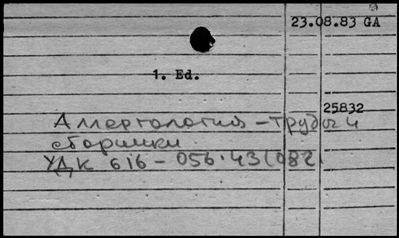 23.08.83 GA
1. Ed.
25832
Аллергология – труды и
сборники
УДК 616 – 056.43(082)